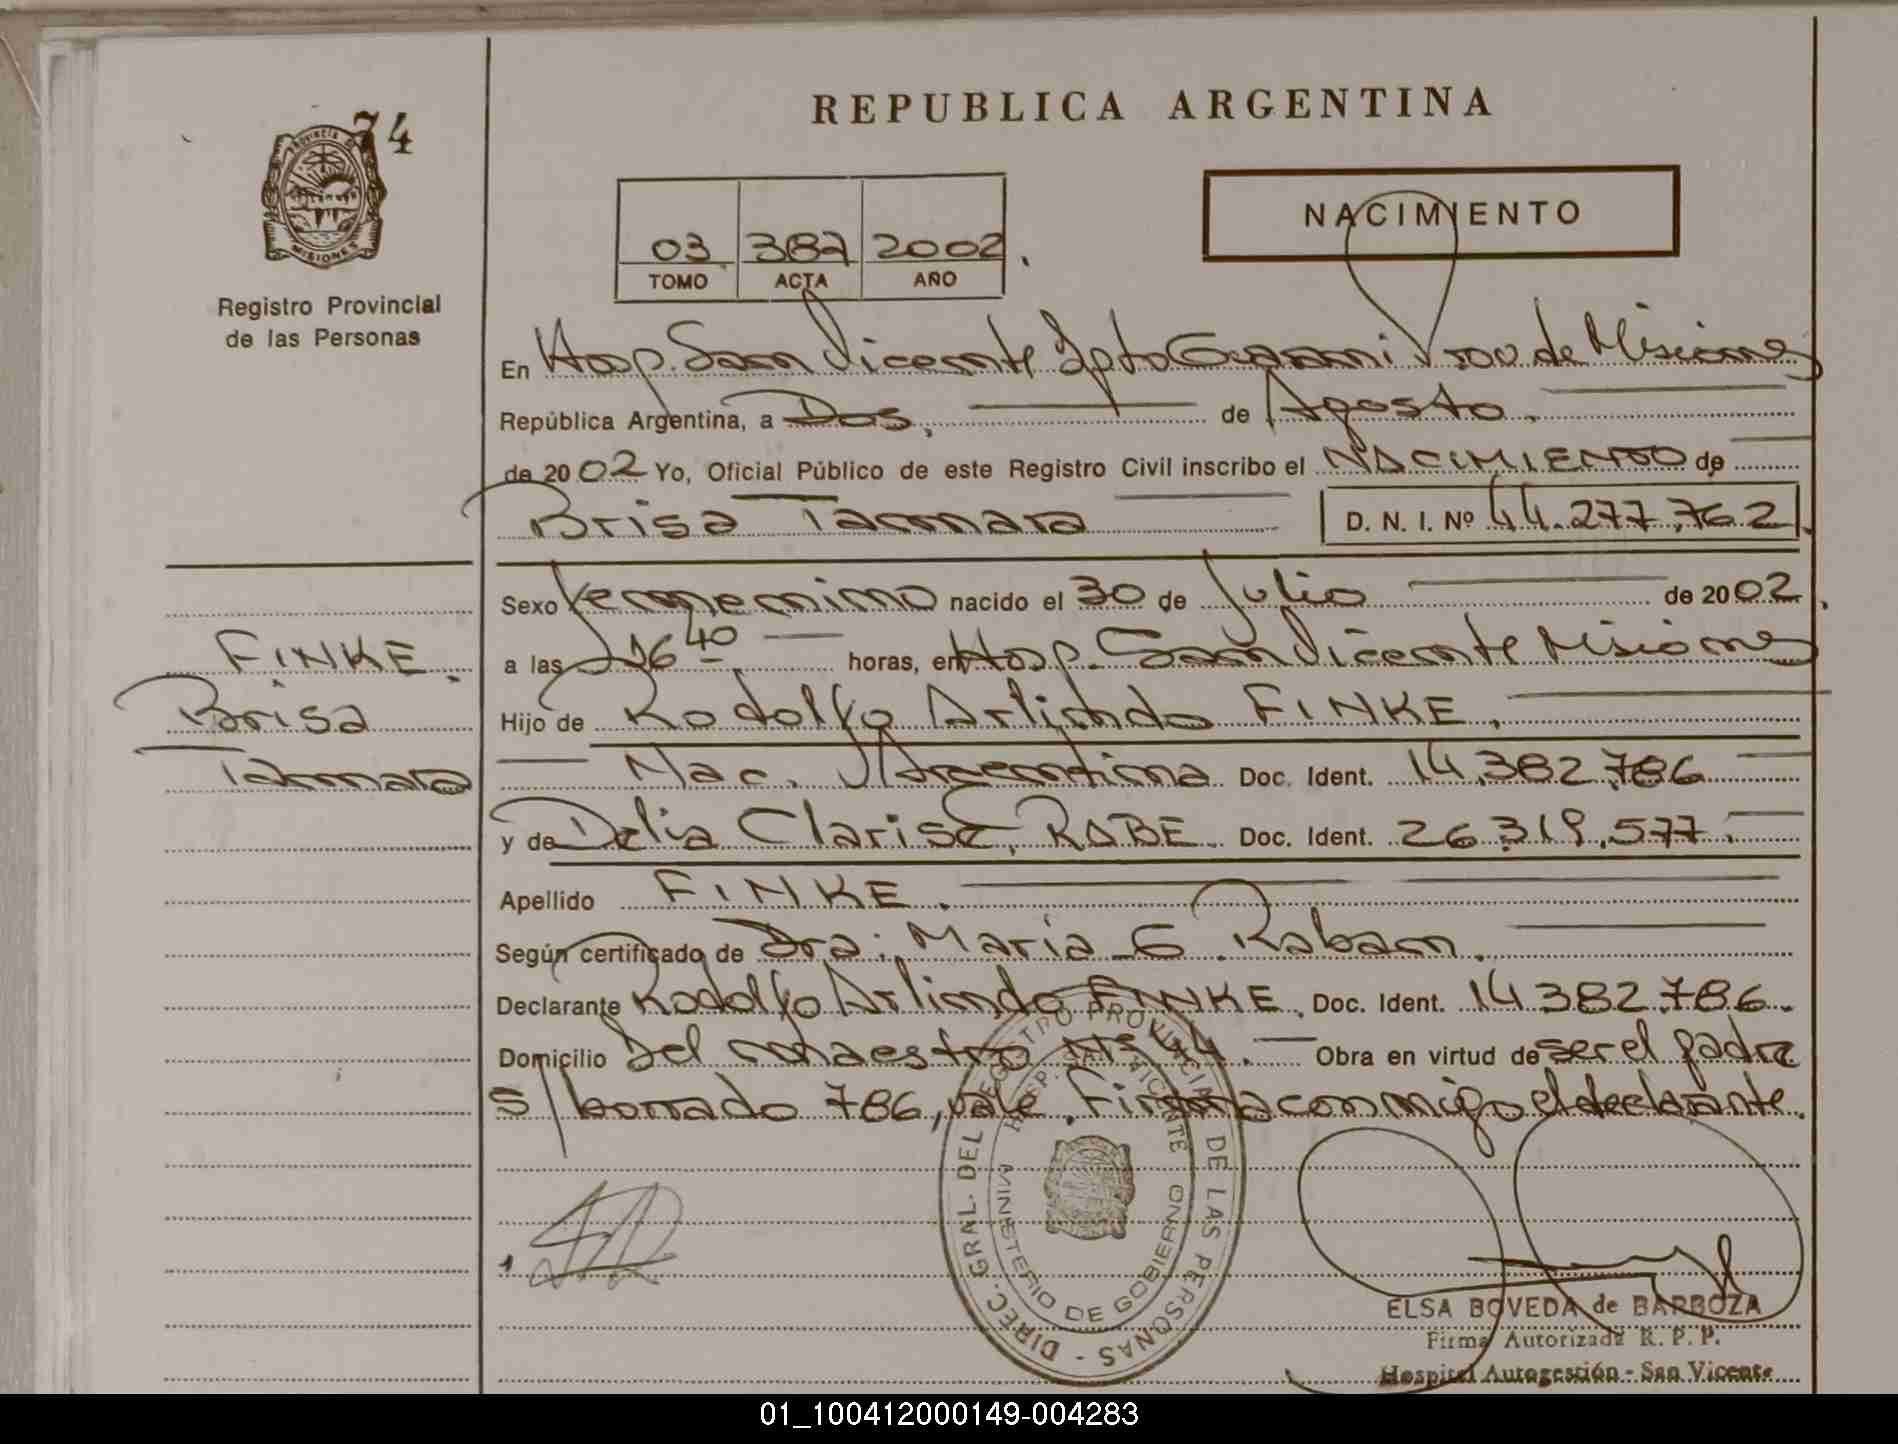 REPUBLICA ARGENTINA
74
PROVINCIA DE
MISIONES
Registro Provincial
de las Personas
NACIMIENTO
03 387 2002.
TOMO ACTA AÑO
En Hosp. San Vicente Dpto Guarani Prov. de Misiones
República Argentina, a Dos, de Agosto.
de 2002 Yo, Oficial Público de este Registro Civil inscribo el NACIMIENTO de
Brisa Tamara D. N. I. Nº 44.277.762.
Sexo Femenino nacido el 30 de Julio de 2002.
a las 16 40 horas, en Hosp. San Vicente Misiones
Hijo de Rodolfo Arlindo FINKE.
Nac. Argentina Doc. Ident. 14.382.786
y de Delia Clarise, RABE. Doc. Ident. 26.319.577.
Apellido FINKE.
Según certificado de Dra: Maria G. Raban.
Declarante Rodolfo Arlindo FINKE. Doc. Ident. 14 382.786.
Domicilio Del maestro Nº 44. Obra en virtud de ser el padre
s/borrado 786, vale. Firma conmigo el declarante.
FINKE.
Brisa
Tamara
DIREC. GRAL. DEL REGISTRO PROVINCIAL DE LAS PERSONAS -
HOSP. SAN VICENTE
MINISTERIO DE GOBIERNO
ELSA BOVEDA de BARBOZA
Firma Autorizada R. P. P.
Hospital Autogestión - San Vicente
01_100412000149-004283